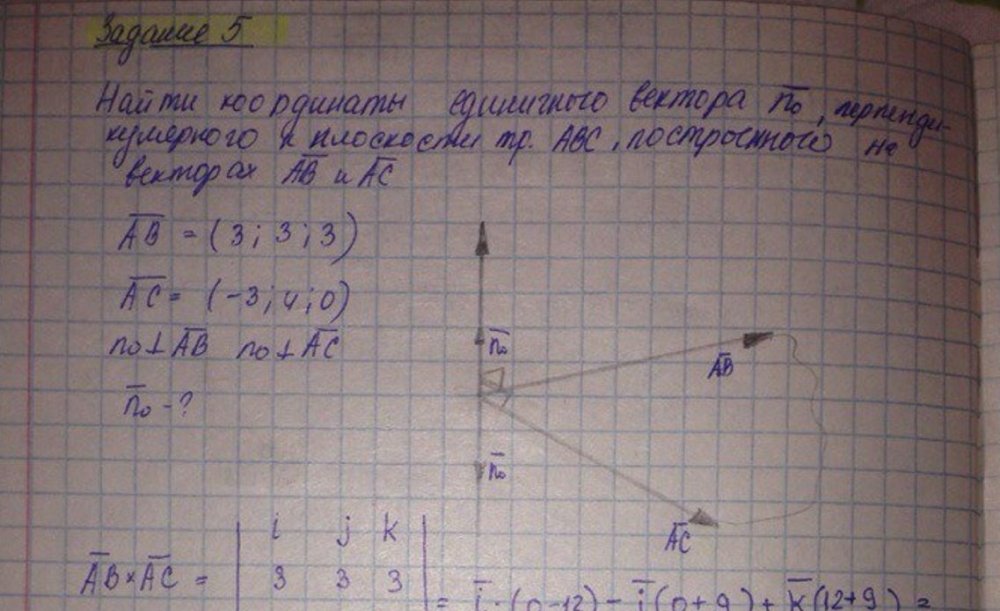 Задание 5
Найти координаты единичного вектора n̅₀, перпенди-
кулярного к плоскости тр. ABC, построенного на
векторах A̅B̅ и A̅C̅
A̅B̅ = (3; 3; 3)
A̅C̅ = (-3; 4; 0)
n₀⊥A̅B̅ n₀⊥A̅C̅
n̅₀ - ?
n̅₀
A̅B̅
n̅₀
A̅C̅
i j k
A̅B̅×A̅C̅ = | 3 3 3 | = i̅·(0-12) - j̅(0+9) + k̅(12+9) =